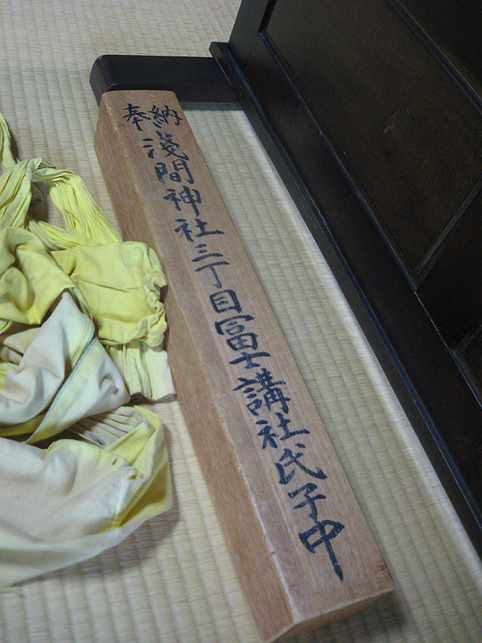 奉納
淺間神社三丁目冨士講社氏子中